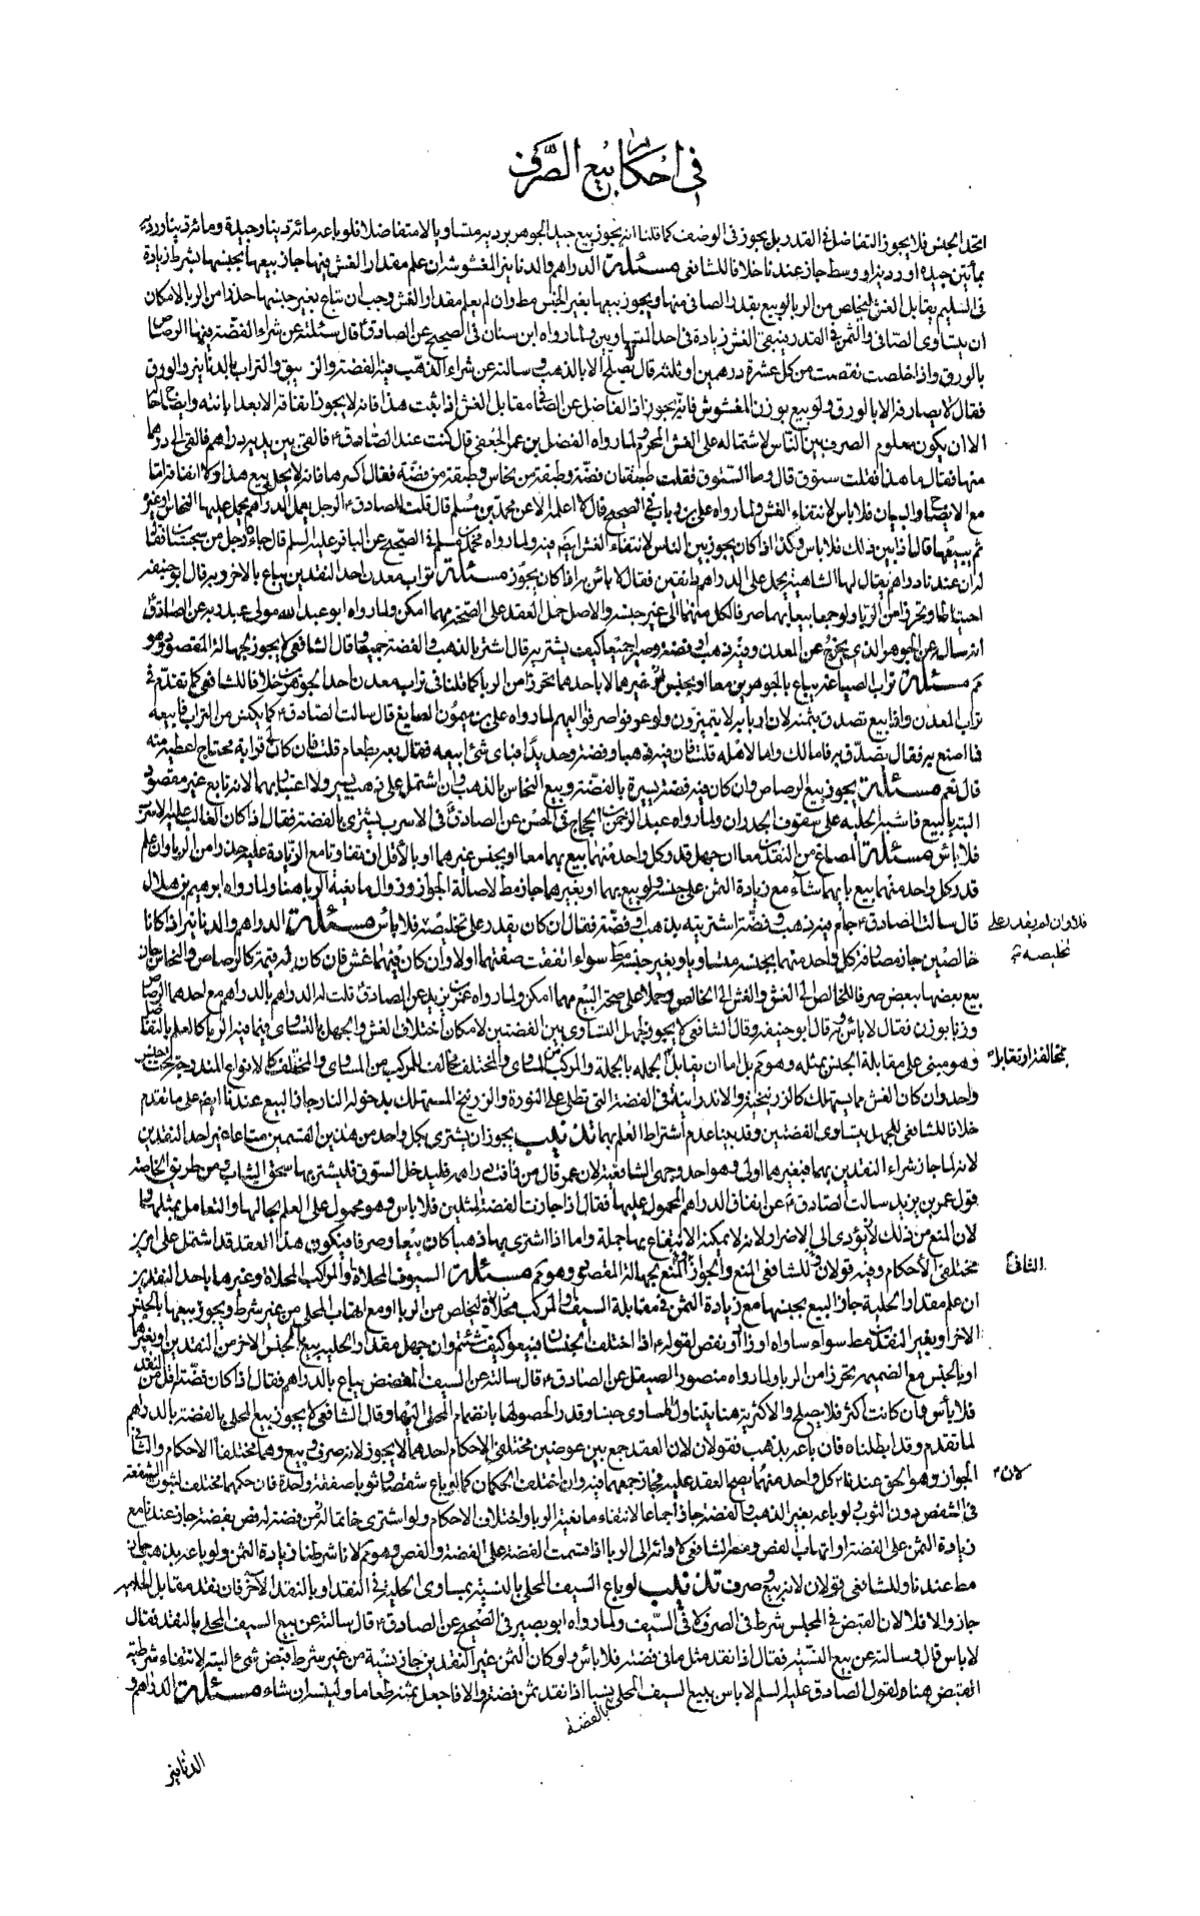 في احكام بيع الصرف
اتحد الجنس فلا يجوز التفاضل في القدر بل يجوز في الوصف كما قلنا انه يجوز بيع جيد الجوهر برديه متساويا لا متفاضلا فلو باعه مائة دينار جيدة ومائة دينار رديه
بمأتين جيده او رديئة او وسط جاز عندنا خلافا للشافعي مسئلة الدراهم والدنانير المغشوشة ان علم مقدار الغش فيها جاز بيعها بجنسها بشرط زيادة
في السليم يقابل الغش ليخلص من الربا ولو بيع بقدر الصافي منها ويجوز بيعها بغير الجنس مط وان لم يعلم مقدار الغش وجب ان تباع بغير جنسها حذرا من الربا لامكان
ان يتساوى الصافي والثمن في القدر فيبقى الغش زيادة في احد المتساويين ولما رواه ابن سنان في الصحيح عن الصادق ع قال سئلته عن شراء الفضة فيها الرصاص
بالورق واذا خلصت نقصت من كل عشرة درهمين او ثلثة قال لا يصلح الا بالذهب وسالته عن شراء الذهب فيه الفضة والزيبق والتراب بالدنانير والورق
فقال لا يصارفه الا بالورق ولو بيع بوزن المغشوش فانه يجوز اذ الفاضل عن الصافي مقابل الغش اذا ثبت هذا فانه لا يجوز انفاقه الا بعد ابانته وايضاح حالها
الا ان يكون معلوم الصرف بين الناس لاشتماله على الغش المحرم ولما رواه الفضل بن عمر الجعفي قال كنت عند الصادق ع فالقى بين يديه دراهم فالقى الي درهما
منها فقال ما هذا فقلت ستوق قال وما الستوق فقلت طبقتان فضة وطبقة من نحاس وطبقة من فضة فقال اكسرها فانه لا يحل بيع هذا ولا انفاقه اما
مع الايضاح والبيان فلا باس لانتفاء الغش ولما رواه علي بن رئاب في الصحيح قال لا اعلمه الا عن محمد بن مسلم قال قلت للصادق ع الرجل يعمل الدراهم يحمل عليها النحاس او غيره
ثم يبيعها قال اذا بين ذلك فلا باس وكذا اذا كان يجوز بين الناس لانتفاء الغش ايضا فيه ولما رواه محمد بن مسلم في الصحيح عن الباقر عليه السلم قال جاءه رجل من سجستان فقال
له ان عندنا دراهم يقال لها الشاهية يحمل على الدراهم دانقين فقال لا باس به اذا كان يجوز مسئلة تراب معدن احد النقدين يباع بالاخر وبه قال ابو حنيفه
احتياطا وتحرزا من الربا ولو جمعا بيعا بهما صرفا لكل منهما الى غير جنسه والاصل حمل العقد على الصحة مهما امكن ولما رواه ابو عبد الله مولى عبد ربه عن الصادق ع
انه سال عن الجوهر الذي يخرج من المعدن وفيه ذهب وفضة وصفر جميعا كيف يشتريه قال اشتر بالذهب والفضة جميعا وقال الشافعي لا يجوز لجهالة المقصود وهو
مم مسئلة تراب الصياغه يباع بالجوهرين معا او بجنس غيرهما لا باحدهما تحرزا من الربا كما قلنا في تراب معدن احد الجوهرين خلافا للشافعي كما تقدم في
تراب المعدن واذا بيع تصدق بثمنه لان اربابه لا يتميزون ولو عرفوا صرف اليهم لما رواه علي بن ميمون الصايغ قال سالت الصادق ع عما يكنس من التراب فابيعه
فما اصنع به فقال يصدق به فاما لك واما لاهله قلت فان فيه ذهبا وفضة وحديدا فباى شئ ابيعه فقال بعه بطعام قلت فان كان لي قرابة محتاج اعطيه منه
قال نعم مسئلة يجوز بيع الرصاص وان كان فيه فضة يسيرة بالفضة وبيع النحاس بالذهب وان اشتمل على ذهب يسير ولا اعتبار بهما لانه تابع غير مقصود
البته بالبيع فاشبه الحلية على سقوف الجدران ولما رواه عبد الرحمن بن الحجاج في الحسن عن الصادق ع في الاسرب يشترى بالفضة فقال اذا كان الغالب عليه الاسرب
فلا باس مسئلة المصاغ من النقدين معا ان جهل قدر كل واحد منهما بيع بهما معا او بجنس غيرهما او بالاقل ان تفاوتا مع الزيادة عليه حذرا من الربا وان علم
قدر كل واحد منهما بيع بايهما شاء مع زيادة الثمن على جنسه ولو بيع بهما او بغيرهما جاز مط لاصالة الجواز وزوال مانعية الربا هنا ولما رواه ابرهيم بن هلال
قال سالت الصادق ع جام فيه ذهب وفضة اشتريه بذهب او فضة فقال ان كان يقدر على تخليصه فلا باس مسئلة الدراهم والدنانير اذا كانا
فلا وان لم يقدر على تخليصه
خالصين جاز مصارفة كل واحد منهما بجنسه متساويا وبغير جنسه مط سواء اتفقت صفتهما اولا وان كان فيهما غش فان كان له قيمة كالرصاص والنحاس جاز
بيع بعضها ببعض صرفا للخالص الى الغش والغش الى الخالص وحملا على صحة البيع مهما امكن ولما رواه عمر بن يزيد عن الصادق ع قلت له الدراهم بالدراهم مع احدهما الرصاص
وزنا بوزن فقال لا باس وبه قال ابو حنيفه وقال الشافعي لا يجوز لجهل التساوى بين الفضتين لامكان اختلاف الغش والجهل بالتساوى فيما فيه الربا كالعلم بالتفاضل
وهو مبني على مقابلة الجنس بمثله وهو مم بل اما ان يقابل الجملة بالجملة والمركب من المساوى والمختلف مخالف للمركب من المساوى والمختلف كالانواع المندرجة تحت جنس
مخالفة او نقابل
واحد وان كان الغش مما يستهلك كالزرنيخية والاندرانية في الفضة التي تطلى على النورة والزرنيخ المستهلك بدخوله النار جاز البيع عندنا ايضا على ما تقدم
خلافا للشافعي للجهل بتساوى الفضتين وقد بينا عدم اشتراط العلم بهما تذنيب يجوز ان يشترى بكل واحد من هذين القسمين متاعا غير احد النقدين
لانه لما جاز شراء النقدين بهما فبغيرهما اولى وهو احد وجهي الشافعية لان عمر قال من زافت دراهمه فليدخل السوق فليشتر بها سحق الثياب ومن طريق الخاصة
قول عمر بن يزيد سالت الصادق ع عن انفاق الدراهم المحمول عليها فقال اذا جازت الفضة المثلين فلا باس وهو محمول على العلم بحالها والتعامل بمثلها
لان المنع من ذلك لا يؤدى الى الاضرار ولانه لا يمكنه الانتفاع بها جملة واما اذا اشترى بها ذهبا كان بيعا وصرفا فيكون هذا العقد قد اشتمل على امرين
مختلفي الأحكام وفيه قولان للشافعي المنع والجواز والمنع لجهالة المقصود وهو مم مسئلة السيوف المحلاة والمراكب المحلاة وغيرهما باحد النقدين
الثاني
ان علم مقدار الحلية جاز البيع بجنسها مع زيادة الثمن في مقابلة السيف والمركب محلاة ليخلص من الربا او مع اتهاب المحلى من غير شرط ويجوز بيعها بالجنس
الاخر او بغير النقدين مط سواء ساواه او زاد او نقص لقوله ع اذا اختلف الجنسان فبيعوا كيف شئتم وان جهل مقدار الحلية بيع بالجنس الاخر من النقدين او بغيرهما
او بالجنس مع الضميمة تحرزا من الربا ولما رواه منصور الصيقل عن الصادق ع قال سالته عن السيف المفضض يباع بالدراهم فقال اذا كان فضته اقل من النقد
فلا بأس وان كانت اكثر فلا يصلح والاكثرية هنا يتناول المساوى جنسا وقدرا لحصولها بانضمام المحلى اليها وقال الشافعي لا يجوز بيع المحلى بالفضة بالدراهم
لما تقدم وقد ابطلناه فان باعه بذهب فقولان لان العقد جمع بين عوضين مختلفي الاحكام احدهما لا يجوز لانه صرف وبيع وهما مختلفا الاحكام والثاني
الجواز وهو الحق عندنا كل واحد منهما يصح العقد عليه فجاز جمعهما فيه وان اختلف الحكمان كما لو باع شقصا وثوبا صفقة واحدة فان حكمهما مختلف لثبوت الشفعة
لان
في الشقص دون الثوب ولو باعه بغير الذهب والفضة جاز اجماعا لانتفاء مانعية الربا واختلاف الاحكام ولو اشترى خاتما له من فضة له فص بفضة جاز عندنا مع
زيادة الثمن على الفضة او اتهاب الفص ومنع الشافعي لادائه الى الربا اذا قسمت الفضة على الفضة والفص وهو مم لانا شرطنا زيادة الثمن ولو باعه بذهب جاز
مط عندنا وللشافعي قولان لانه بيع وصرف تذنيب لو باع السيف المحلى بالنسية بمساوى الحلية في النقد او بالنقد الاخر فان نقد مقابل الحلية
جاز والا فلا لان القبض في المجلس شرط في الصرف لا في السيف ولما رواه ابو بصير في الصحيح عن الصادق ع قال سالته عن بيع السيف المحلى بالنقد فقال
لا باس قال وسالته عن بيع النسية فقال اذا نقد مثل ما في فضته فلا بأس ولو كان الثمن غير النقدين جاز نسية من غير شرط قبض شئ البته لانتفاء شرطية
القبض هنا ولقول الصادق عليه السلم لا باس ببيع السيف المحلى بنسيا اذا نقد ثمن فضته والا فاجعل ثمنه طعاما ولينسه ان شاء مسئلة الدراهم و
بالفضة
الدنانير